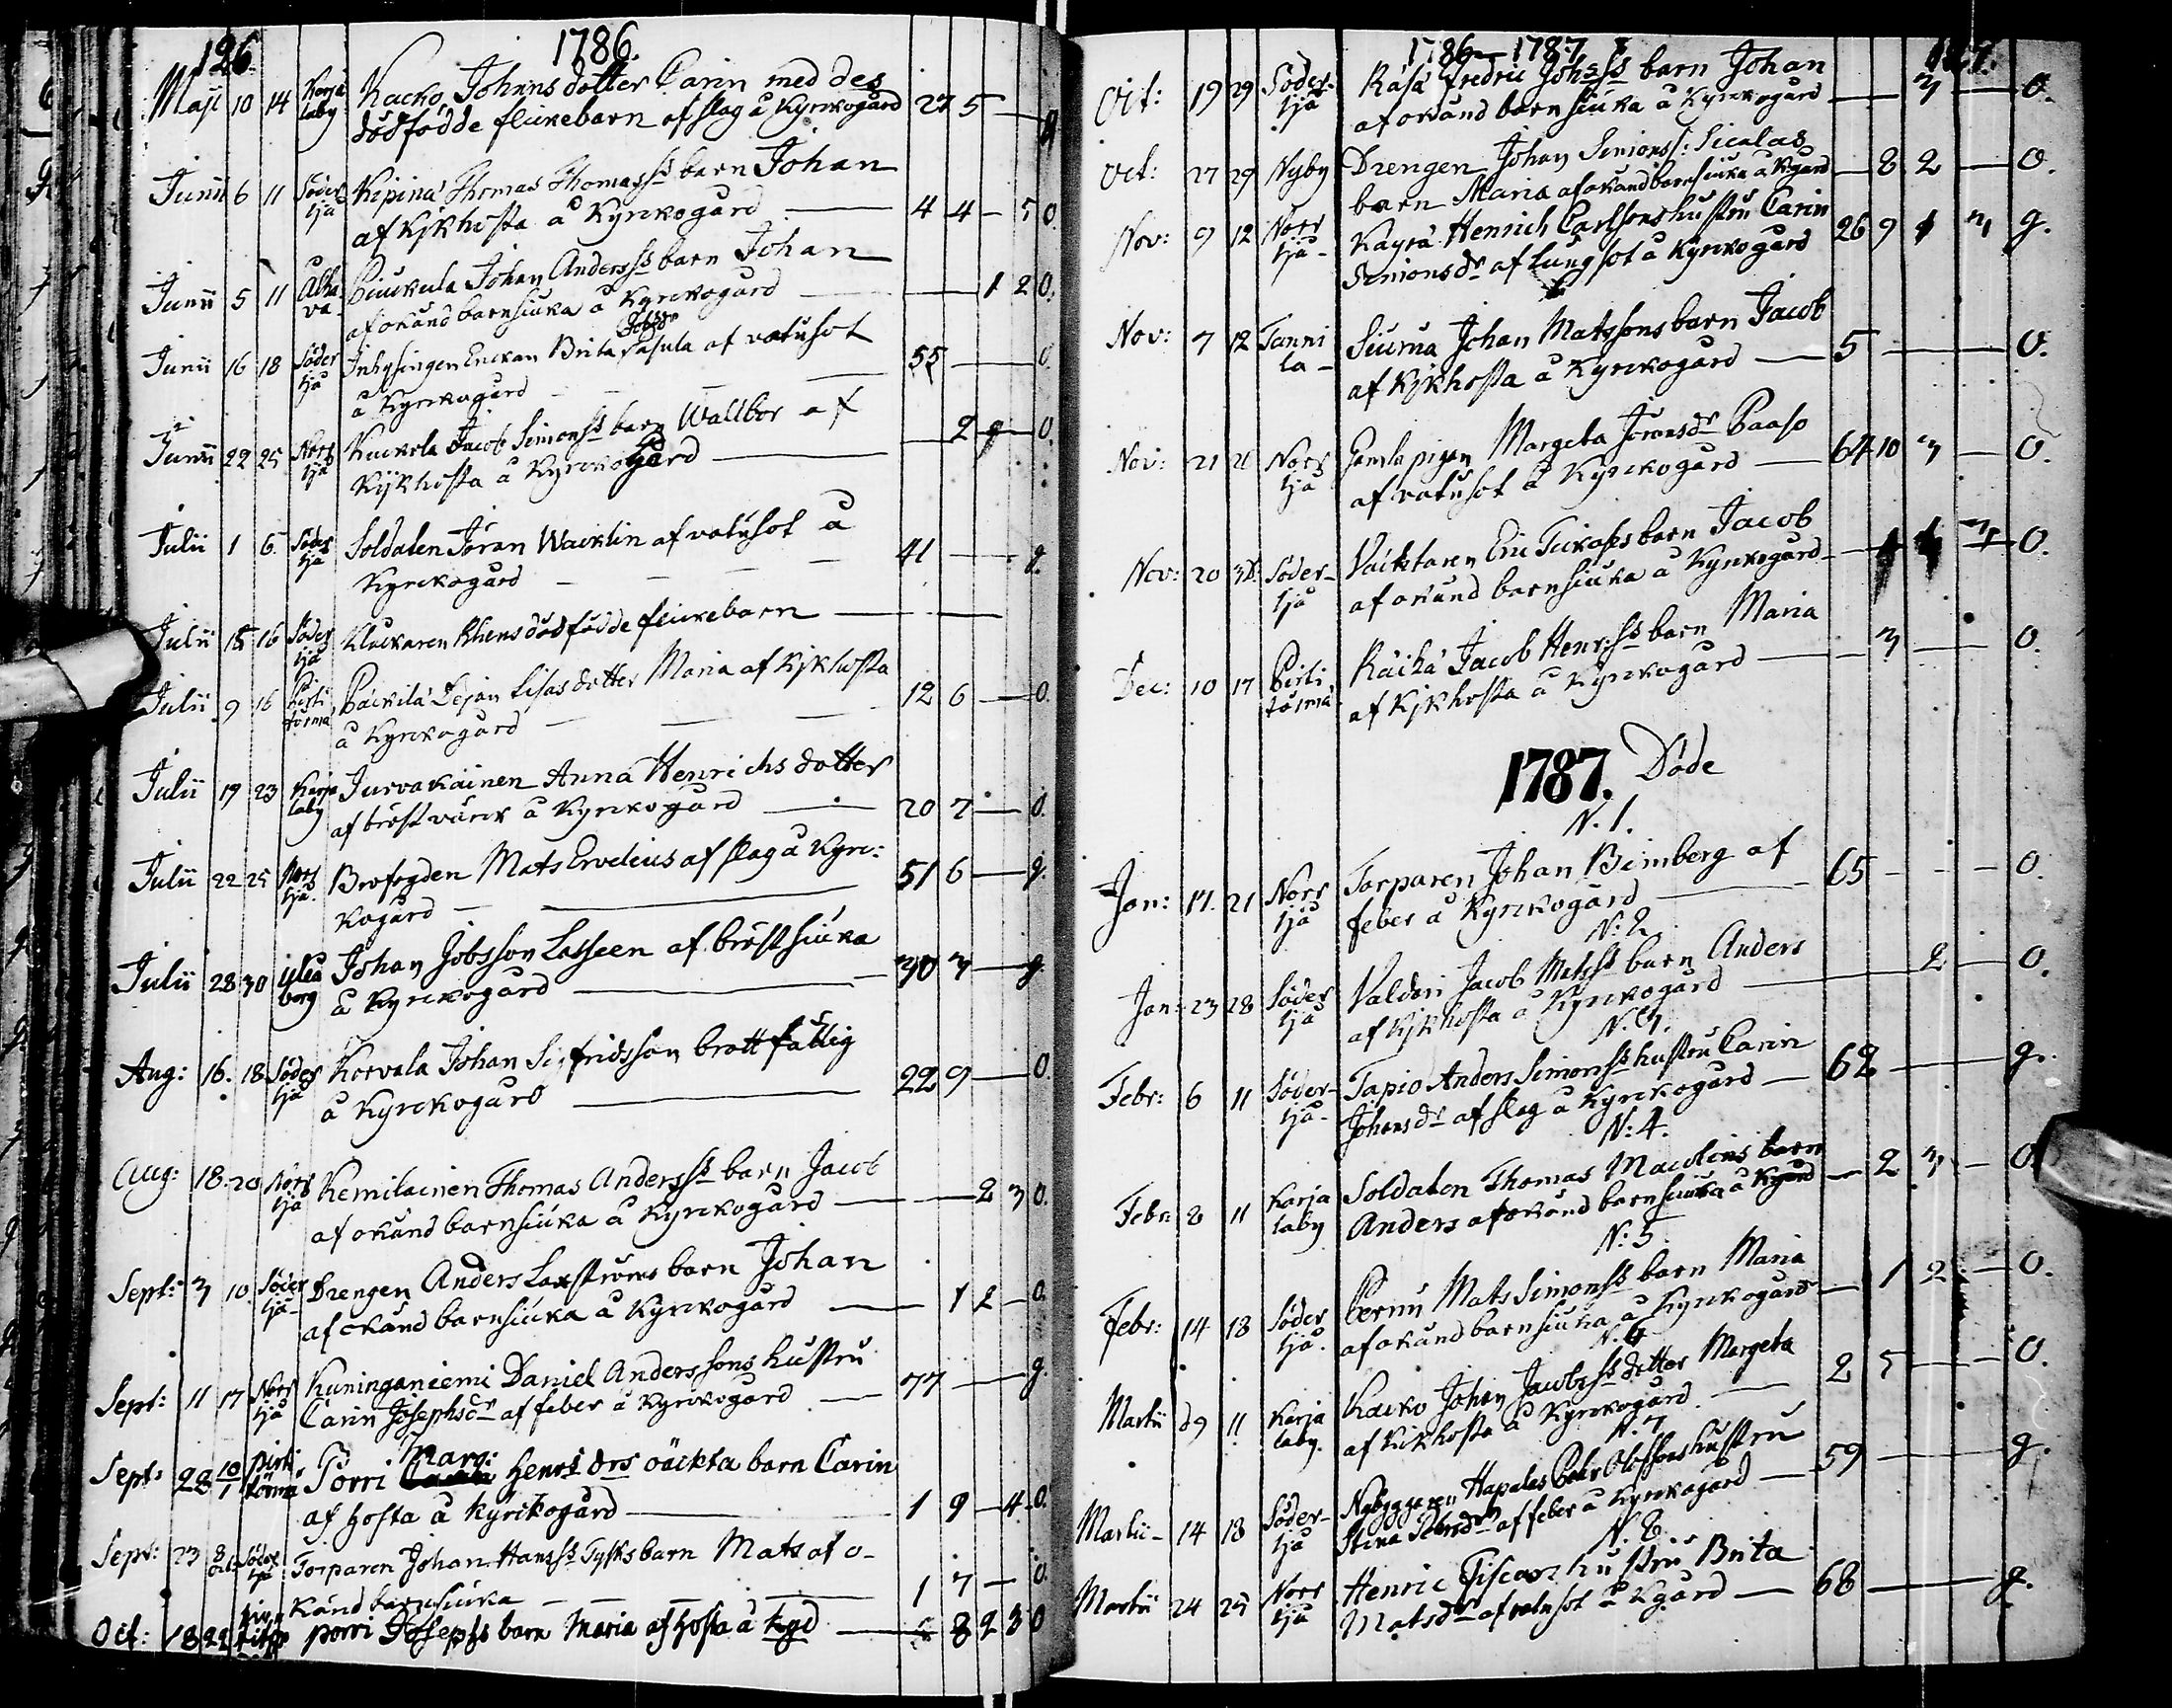 126.
1786.
Maji 10 14 Karja laby Kacko Johans dotter Carin med des
dödfödde flickebarn af slag å Kyrckogård 27 5 — g
Junii 6 11 Söder ljå Kipinä Thomas Thomasss barn Johan
af Kjkhosta å Kyrckogård — 4 4 — 5 0.
Junii 5 11 Alha va Johan Andersss barn Johan
af okänd barnsiuka å Kyrckogård — 1 2 0.
Junii 16 18 Söder ljå Inhysingen Enckan Brita Jobsdr af vatusot
å Kyrckogård — 55 — 0
Junii 22 25 Norr ljå Kuckola Jacob Simonss barn Wallbor af
Kijkhosta å Kyrckogård — 2 — 0.
Julii 1 6. Söder ljå Soldaten Jöran Wacklin af vatusot å
Kyrckogård — 41 — g.
Julii 15 16 Söder ljå Klockaren Rhens dödfödde flickebarn —
Julii 9 16 Pirti törmä Päckilä Pejan Lisas dotter Maria af Kjkhosta
å Kyrckogård — 12 6 — 0
Julii 19 23 Karja laby Jurvakainen Anna Henrichs dotter
af bröstvärck å Kyrckogård — 20 7 — 0.
Julii 22 25 Norr ljå. Brofogden Mats Ervelius af slag å Kyrc:
kogård — 51 6 — g.
Julii 28 30 Ulea borg Johan Jobsson Lasseen af bröstsiuka
å Kyrckogård — 30 3 — g.
Aug: 16. 18 Söder ljå Korvala Johan Sigfridsson brottfällig
å Kyrckogård — 22 9 — 0.
Aug: 18. 20 Norr ljå Kemilainen Thomas Andersss barn Jacob
af okänd barnsiuka å Kyrckogård — 2 3 0.
Sept: 3 10. Söder ljå Drengen Anders Laxströms barn Johan
af okänd barnsiuka å Kyrckogård — 1 2 — 0.
Sept: 11 17 Norr ljå Kuninganiemi Daniel Anderssons hustru
Carin Josephsdr af feber å Kyrckogård — 77 — g.
Marg:
Sept: 28 10/1 Pirti törmä Porri Henrs drs oäckta barn Carin
af hosta å Kyrckogård — 1 9 — 4 0.
Sept: 23 8 Oct Söder ljå Torparen Johan Hansss Tysks barn Mats af o-
känd barnsiuka — 1 7 — 0
Oct: 18 22 Porri Josephs barn Maria af hosta å Kgd — 8 2 3 0
1786—1787
127.
Oct: 19 29 Söder ljå Räsä Fredric Johsss barn Johan
af okänd barnsiuka å Kyrckogård — 3 — 0.
Oct: 27 29 Nyby Drengen Johan Simonss: Sicalas
barn Maria af okänd barnsiuka å Kgård — 8 2 — 0.
Nov: 9 12 Norr ljå Käyrä Henrich Carlssons hustru Carin
Simonsdr af lungsot å Kyrckogård 26 9 1 3 g.
Nov: 7 12 Tanni la Siurua Johan Matssons barn Jacob
af Kjkhosta å Kyrckogård — 5 — 0.
Nov: 21 26 Norr ljå Gamla pigan Margeta Jöransdr Paaso
af vatusot å Kyrckogård — 64 10 3 — 0.
Nov: 20 Söder ljå Väcktaren Eric barn Jacob
af okänd barnsiuka å Kyrckogård — 0.
Dec: 10 17 Pirti törmä Räihä Jacob Henrss barn Maria
af Kjkhosta å Kyrckogård — 3 — 0.
1787. Döde
N. 1.
Jan: 17. 21 Norr ljå Torparen Johan Bimberg af
feber å Kyrckogård — 65 — 0.
N: 2
Jan: 23 28 Söder ljå Valdari Jacob Matsss barn Anders
af Kjkhosta å Kyrckogård — 2 — 0.
N. 3.
Febr: 6 11 Söder ljå Tapio Anders Simonss hustru Carin
Johansdr af slag å Kyrckogård — 62 — g.
N: 4.
Febr: 8 11 Karja laby Soldaten Thomas Macklins barn
Anders af okänd barnsiuka å Kgård — 2 3 — 0.
N: 5
Febr: 14 18 Söder ljå. Pernu Mats Simonss barn Maria
af okänd barnsiuka å Kyrckogård — 1 2 — 0.
N. 6
Martii 9 11 Karja laby. Kacko Johan Jacobsss dotter Margeta
af Kikhosta å Kyrckogård. — 2 5 — 0.
N. 7
Martii 14 18 Söder ljå Nybyggaren Hapalas Pehr Olofssons hustru
Stina Pehrsdr af feber å Kyrckogård — 59 — g.
N. 8.
Martii 24 25 Norr ljå Henric Fiscars hustru Brita
Matsdr af vatusot å Kgård — 68 — g.